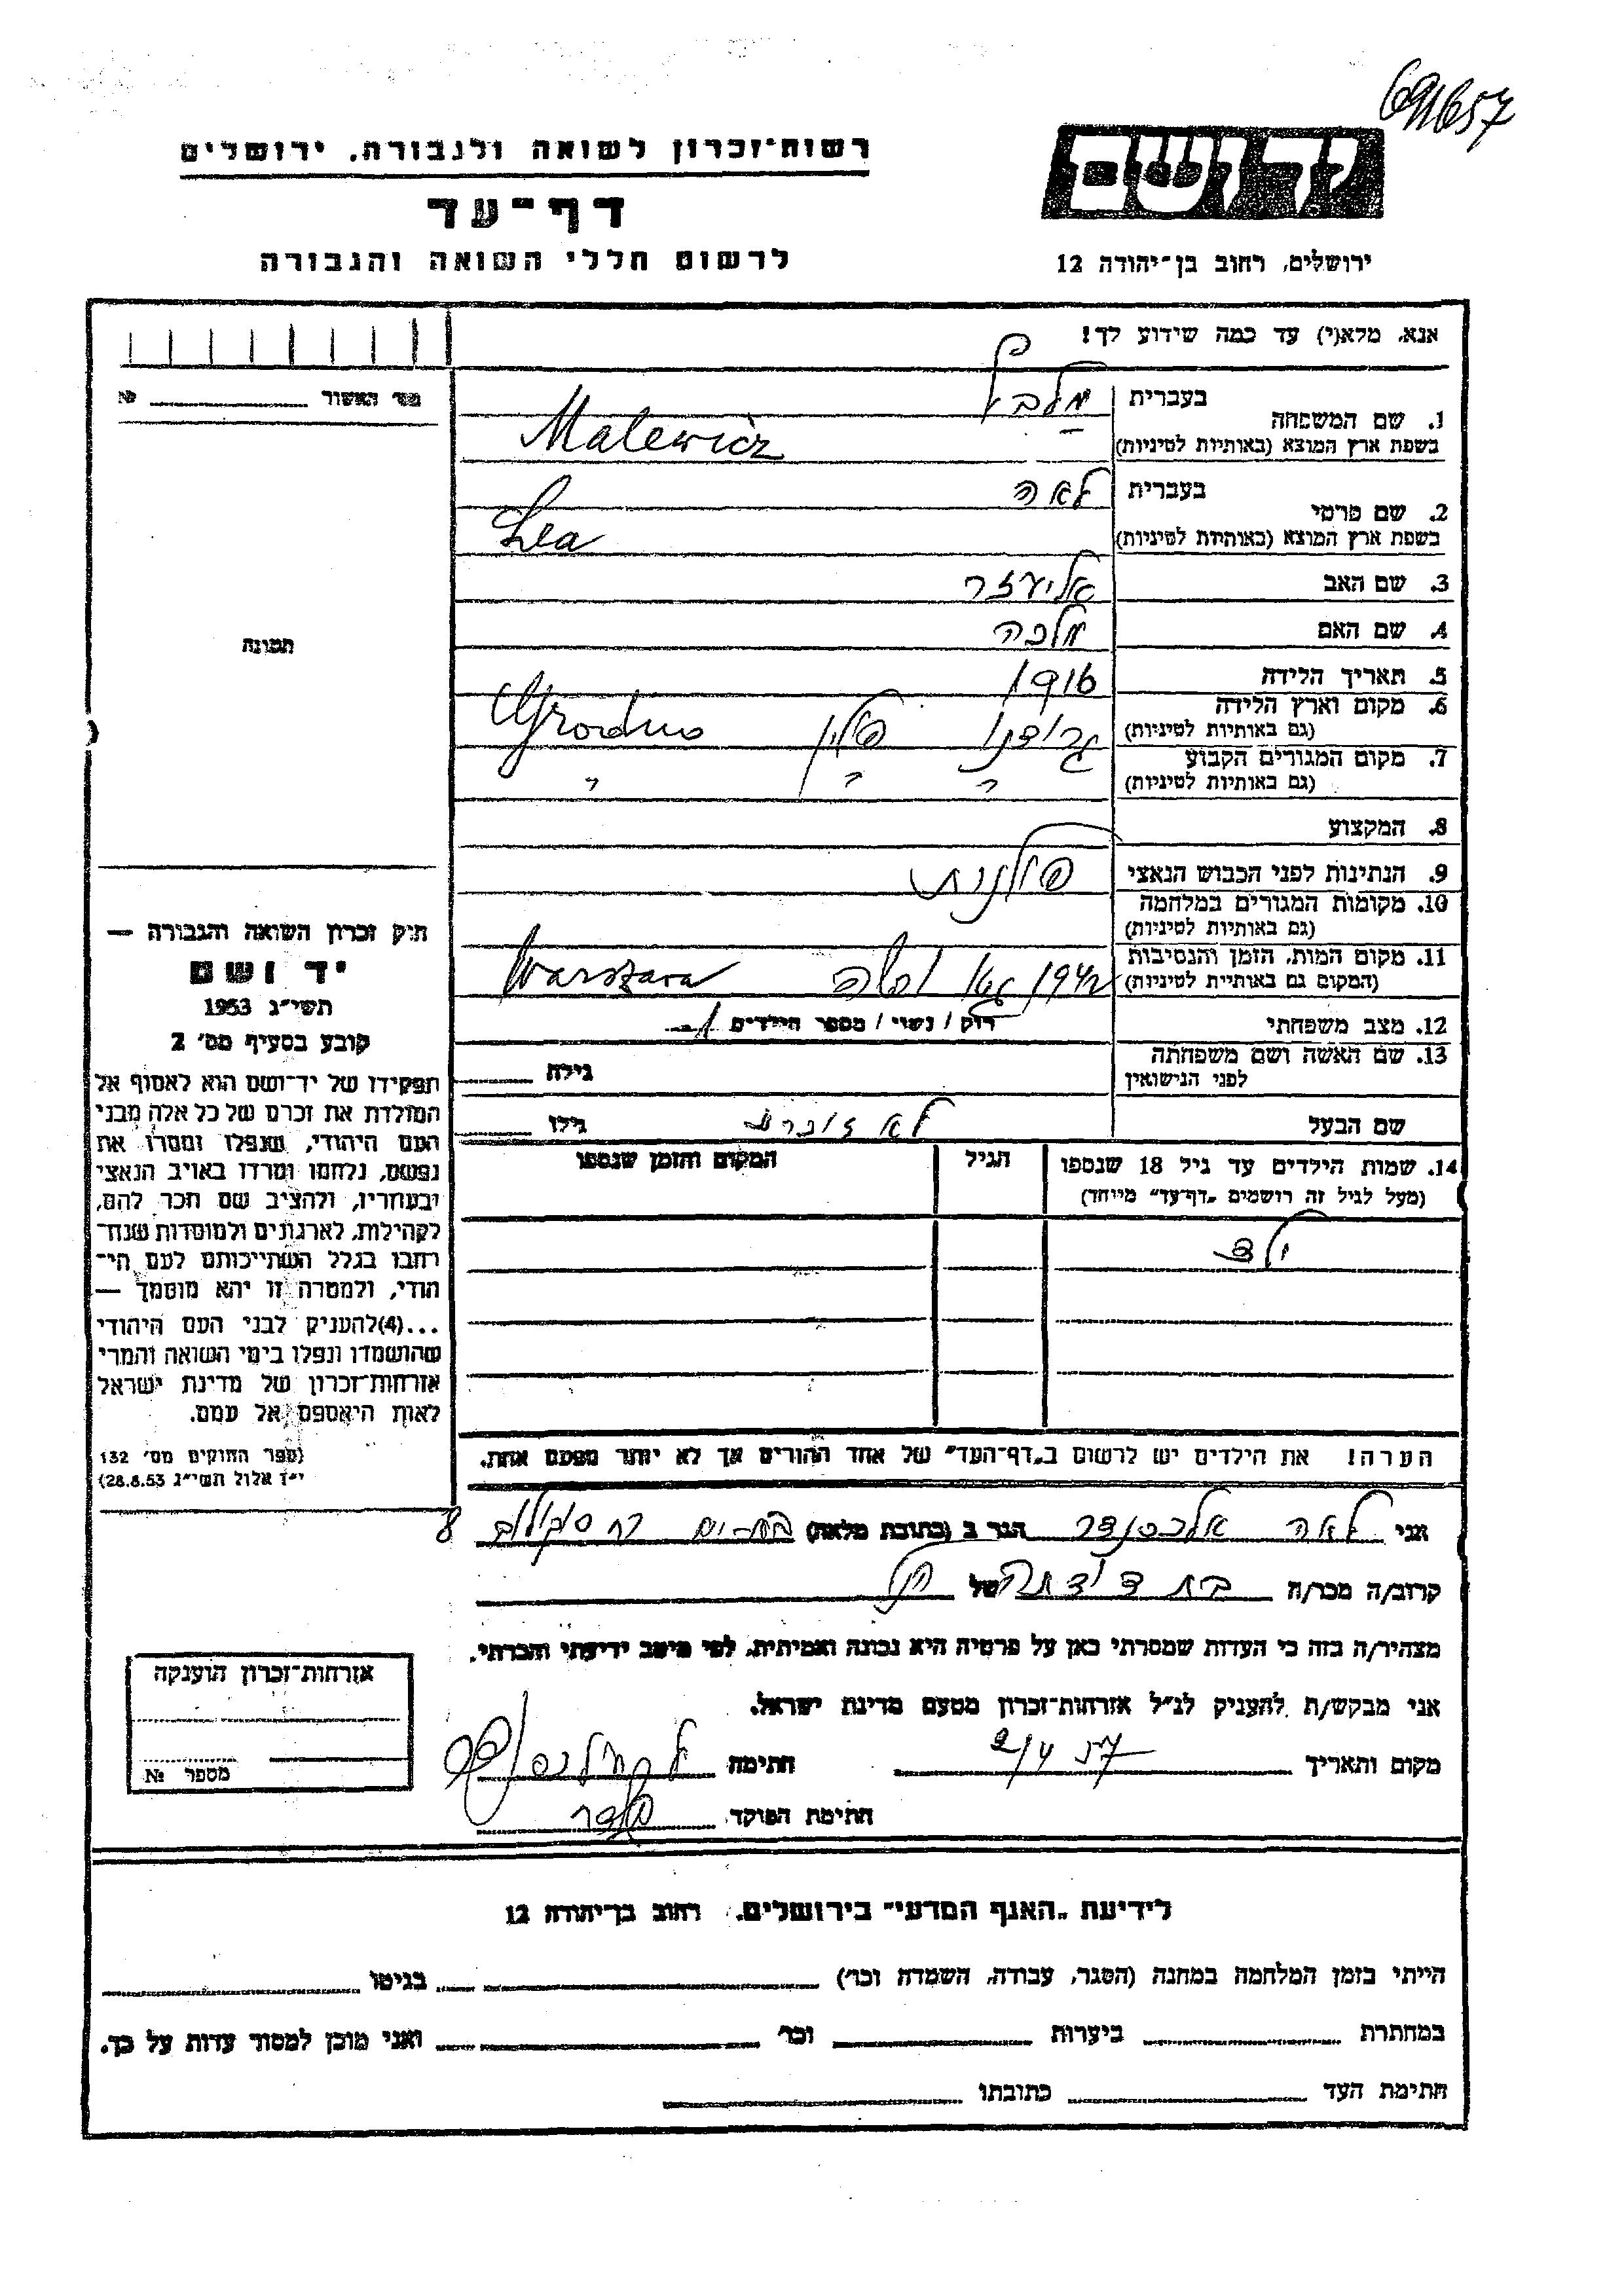 691657
רשות־זכרון לשואה ולגבורה, ירושלים
ידושם
דף־עד
לרשום חללי השואה והגבורה
ירושלים, רחוב בן־יהודה 12
אנא, מלא(י) עד כמה שידוע לך!
מס׳ האשור № 
1. שם המשפחה בעברית
בשפת ארץ המוצא (באותיות לטיניות) Malewicz
2. שם פרטי בעברית לאה
בשפת ארץ המוצא (באותיות לטיניות) Lea
3. שם האב אליעזר
4. שם האם מלכה
תמונה
5. תאריך הלידה 1916
6. מקום וארץ הלידה (גם באותיות לטיניות) גרודנו פולין Grodno
7. מקום המגורים הקבוע (גם באותיות לטיניות) " " "
8. המקצוע
9. הנתינות לפני הכבוש הנאצי פולנית
10. מקומות המגורים במלחמה (גם באותיות לטיניות)
11. מקום המות, הזמן והנסיבות (המקום גם באותיות לטיניות) 1942 גטו ורשה Warszawa
12. מצב משפחתי רוק / נשוי / מספר הילדים 1
13. שם האשה ושם משפחתה לפני הנישואין גילה
שם הבעל לא זוכרת גילו
14. שמות הילדים עד גיל 18 שנספו (מעל לגיל זה רושמים „דף־עד״ מיוחד) הגיל המקום והזמן שנספו
ילד
הערה! את הילדים יש לרשום ב„דף־העד״ של אחד ההורים אך לא יותר מפעם אחת.
חוק זכרון השואה והגבורה —
יד ושם
תשי״ג 1953
קובע בסעיף מס׳ 2
תפקידו של יד־ושם הוא לאסוף אל
המולדת את זכרם של כל אלה מבני
העם היהודי, שנפלו ומסרו את
נפשם, נלחמו ומרדו באויב הנאצי
ובעוזריו, ולהציב שם וזכר להם,
לקהילות, לארגונים ולמוסדות שנח־
רבו בגלל השתייכותם לעם הי־
הודי, ולמטרה זו יהא מוסמך —
...(4)להעניק לבני העם היהודי
שהושמדו ונפלו בימי השואה והמרי
אזרחות־זכרון של מדינת ישראל
לאות היאספם אל עמם.
(ספר החוקים מס׳ 132
י״ז אלול תשי״ג 28.8.53)
אני לאה אלכסנדר הגר ב (כתובת מלאה) רח סוקולוב 8
קרוב/ה מכר/ה בת דודתה של הנ"ל
מצהיר/ה בזה כי העדות שמסרתי כאן על פרטיה היא נכונה ואמיתית, לפי מיטב ידיעתי והכרתי.
אני מבקש/ת להעניק לנ״ל אזרחות־זכרון מטעם מדינת ישראל.
מקום ותאריך חתימה
חתימת הפוקד
אזרחות־זכרון הוענקה
מספר №
לידיעת „האגף המדעי״ בירושלים, רחוב בן־יהודה 12
הייתי בזמן המלחמה במחנה (הסגר, עבודה, השמדה וכו׳) בגיטו
במחתרת ביערות וכו׳ ואני מוכן למסור עדות על כך.
חתימת העד כתובתו